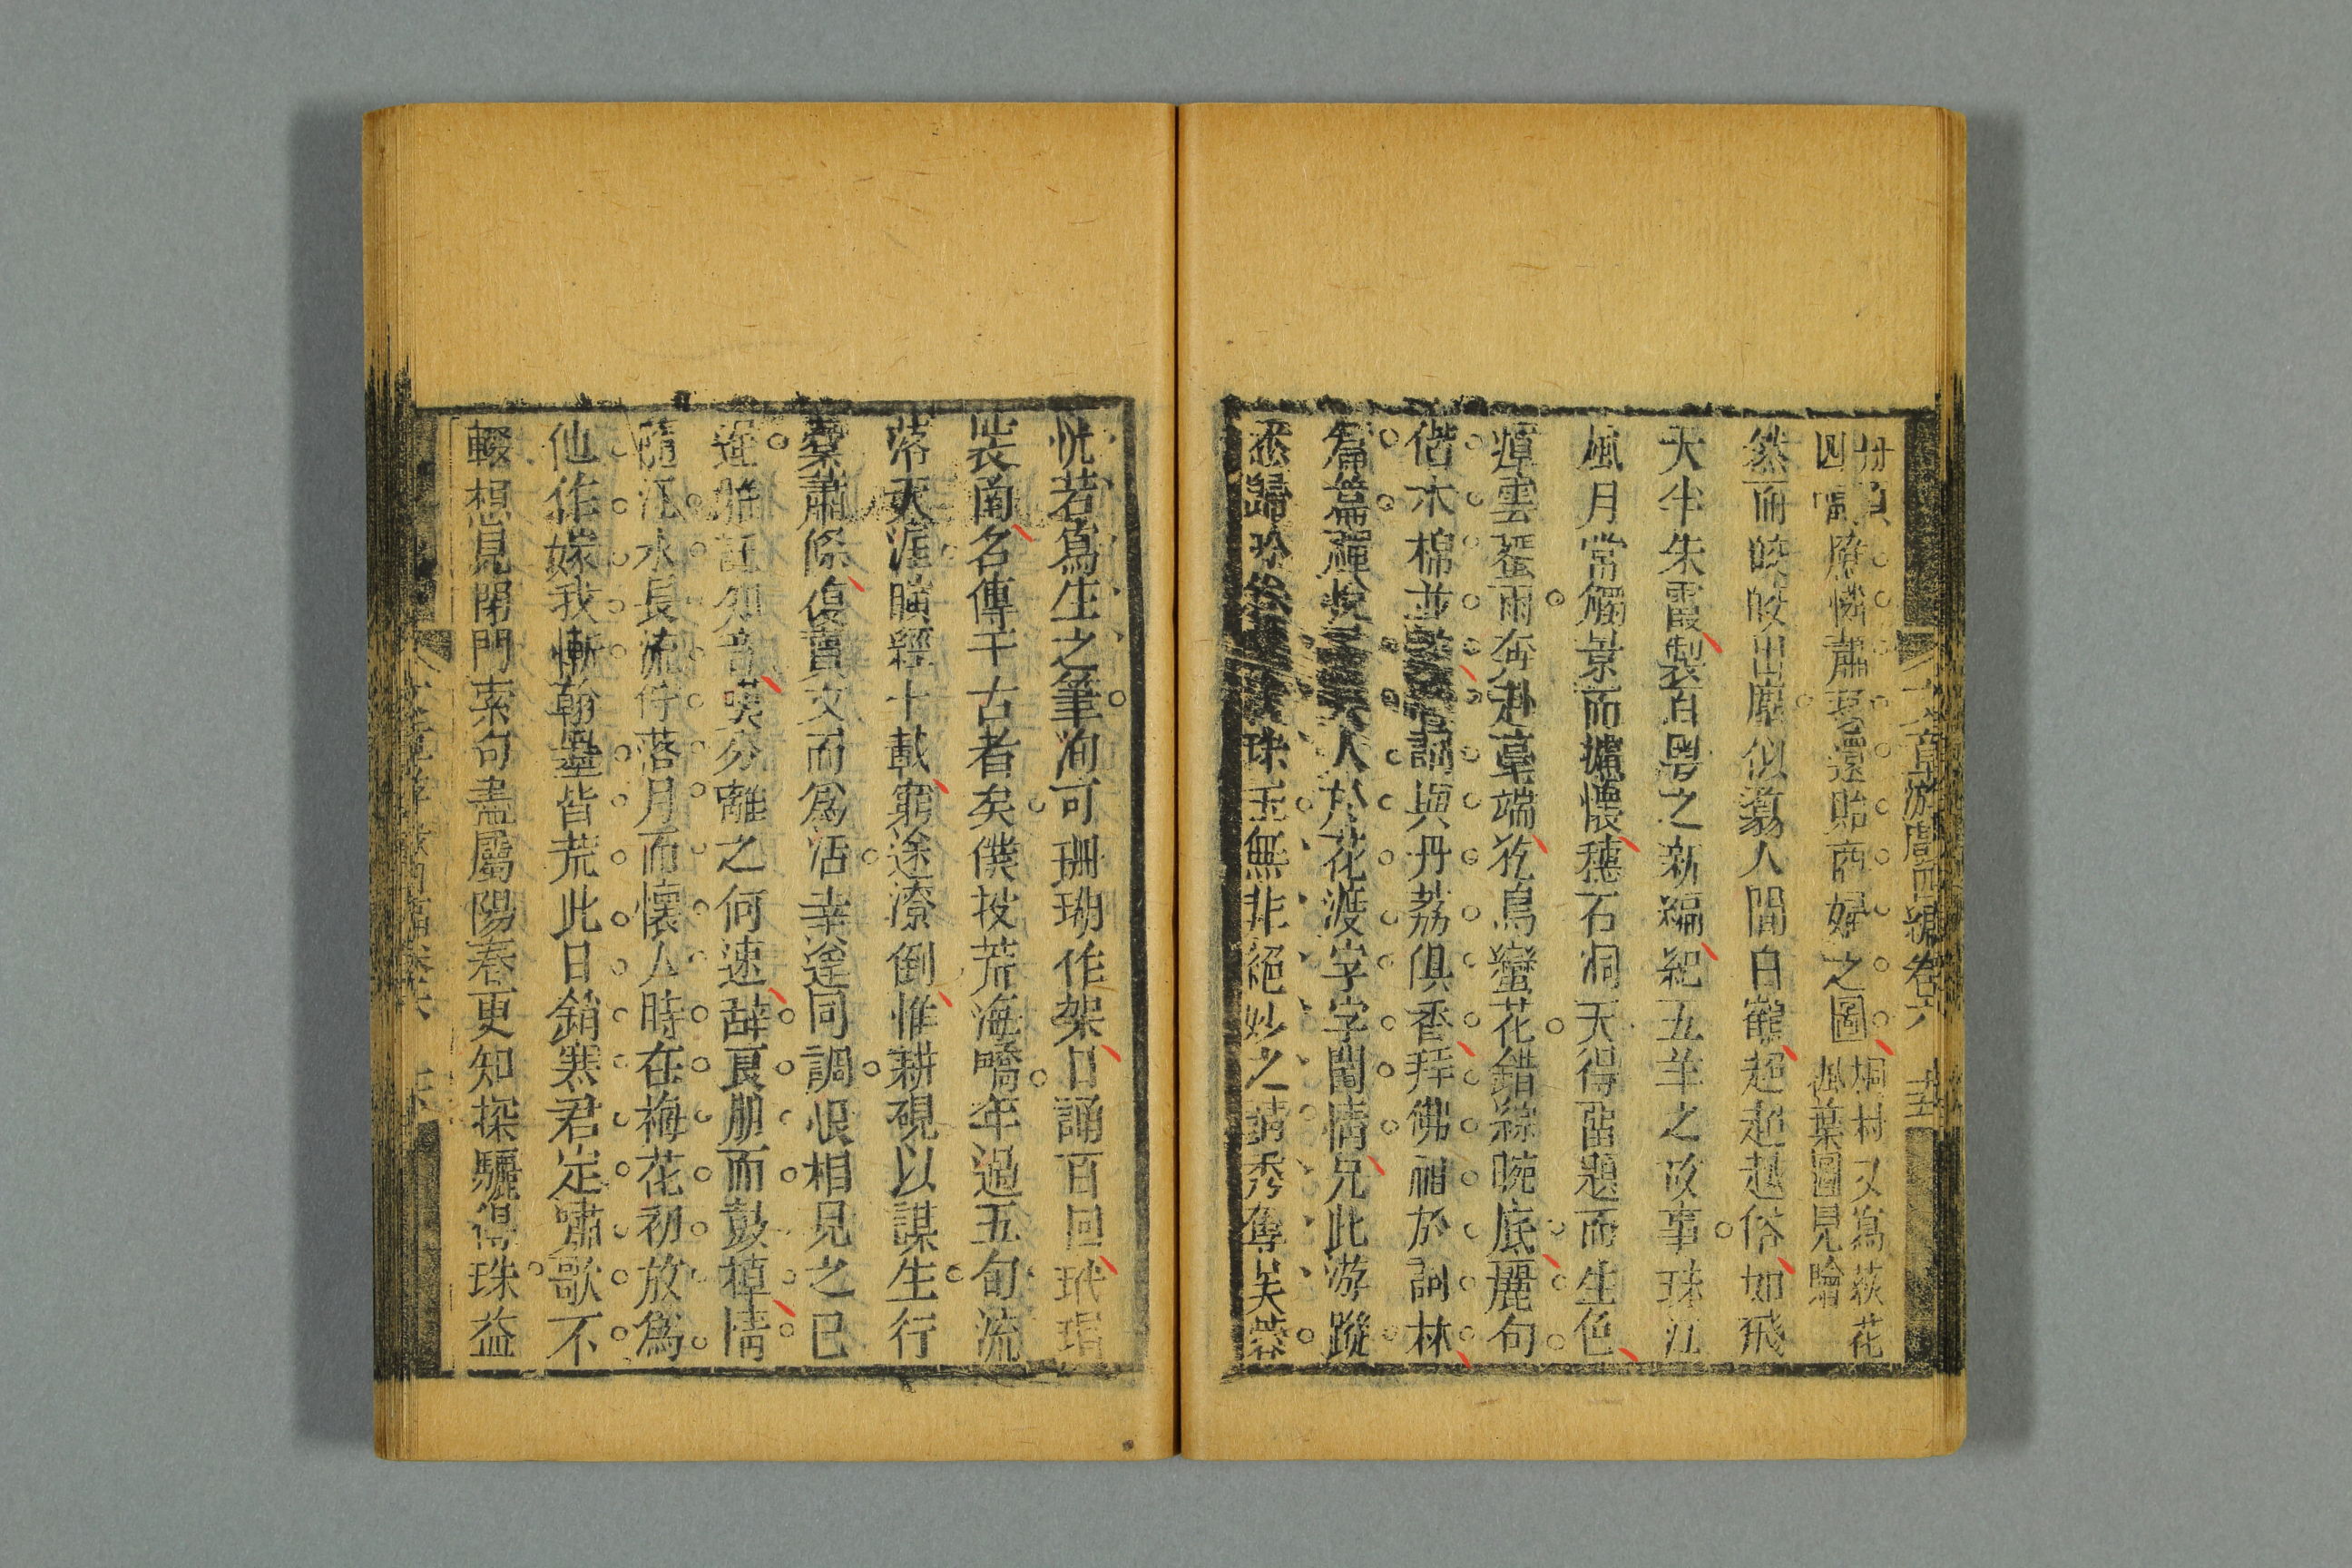 文章游戲二編卷六
四
憐蕭瑟還貽商婦之圖桐村又寫荻花
楓葉圖見贈
然而皎皎出塵似翥人間白鶴超超越俗如飛
天半朱霞製百粵之新編紀五羊之故事珠江
風月常觸景而攄懷穗石洞天得留題而生色
瘴雲蜑雨奔赴毫端犵鳥蠻花錯綜腕底麗句
偕木棉並 詞與丹荔俱香拜佛祖於詞林
篇篇禪悅 美人於花渡字字閨情凡此游蹤
悉歸吟 珠玉無非絕妙之詞秀奪芙蓉
恍若寫生之筆洵可珊瑚作架日誦百回玳瑁
裝函名傳千古者矣僕技荒海嶠年過五旬流
落天涯瞬經十載窮途潦倒惟耕硯以謀生行
橐蕭條復賣文而爲活幸逢同調恨相見之已
遲 嘆分離之何速辭良朋而鼓棹情
隨江水長流佇落月而懷人時在梅花初放爲
他作嫁我慚翰墨皆荒此日銷寒君定嘯歌不
輟想見閉門索句盡屬陽春更知探驪得珠益